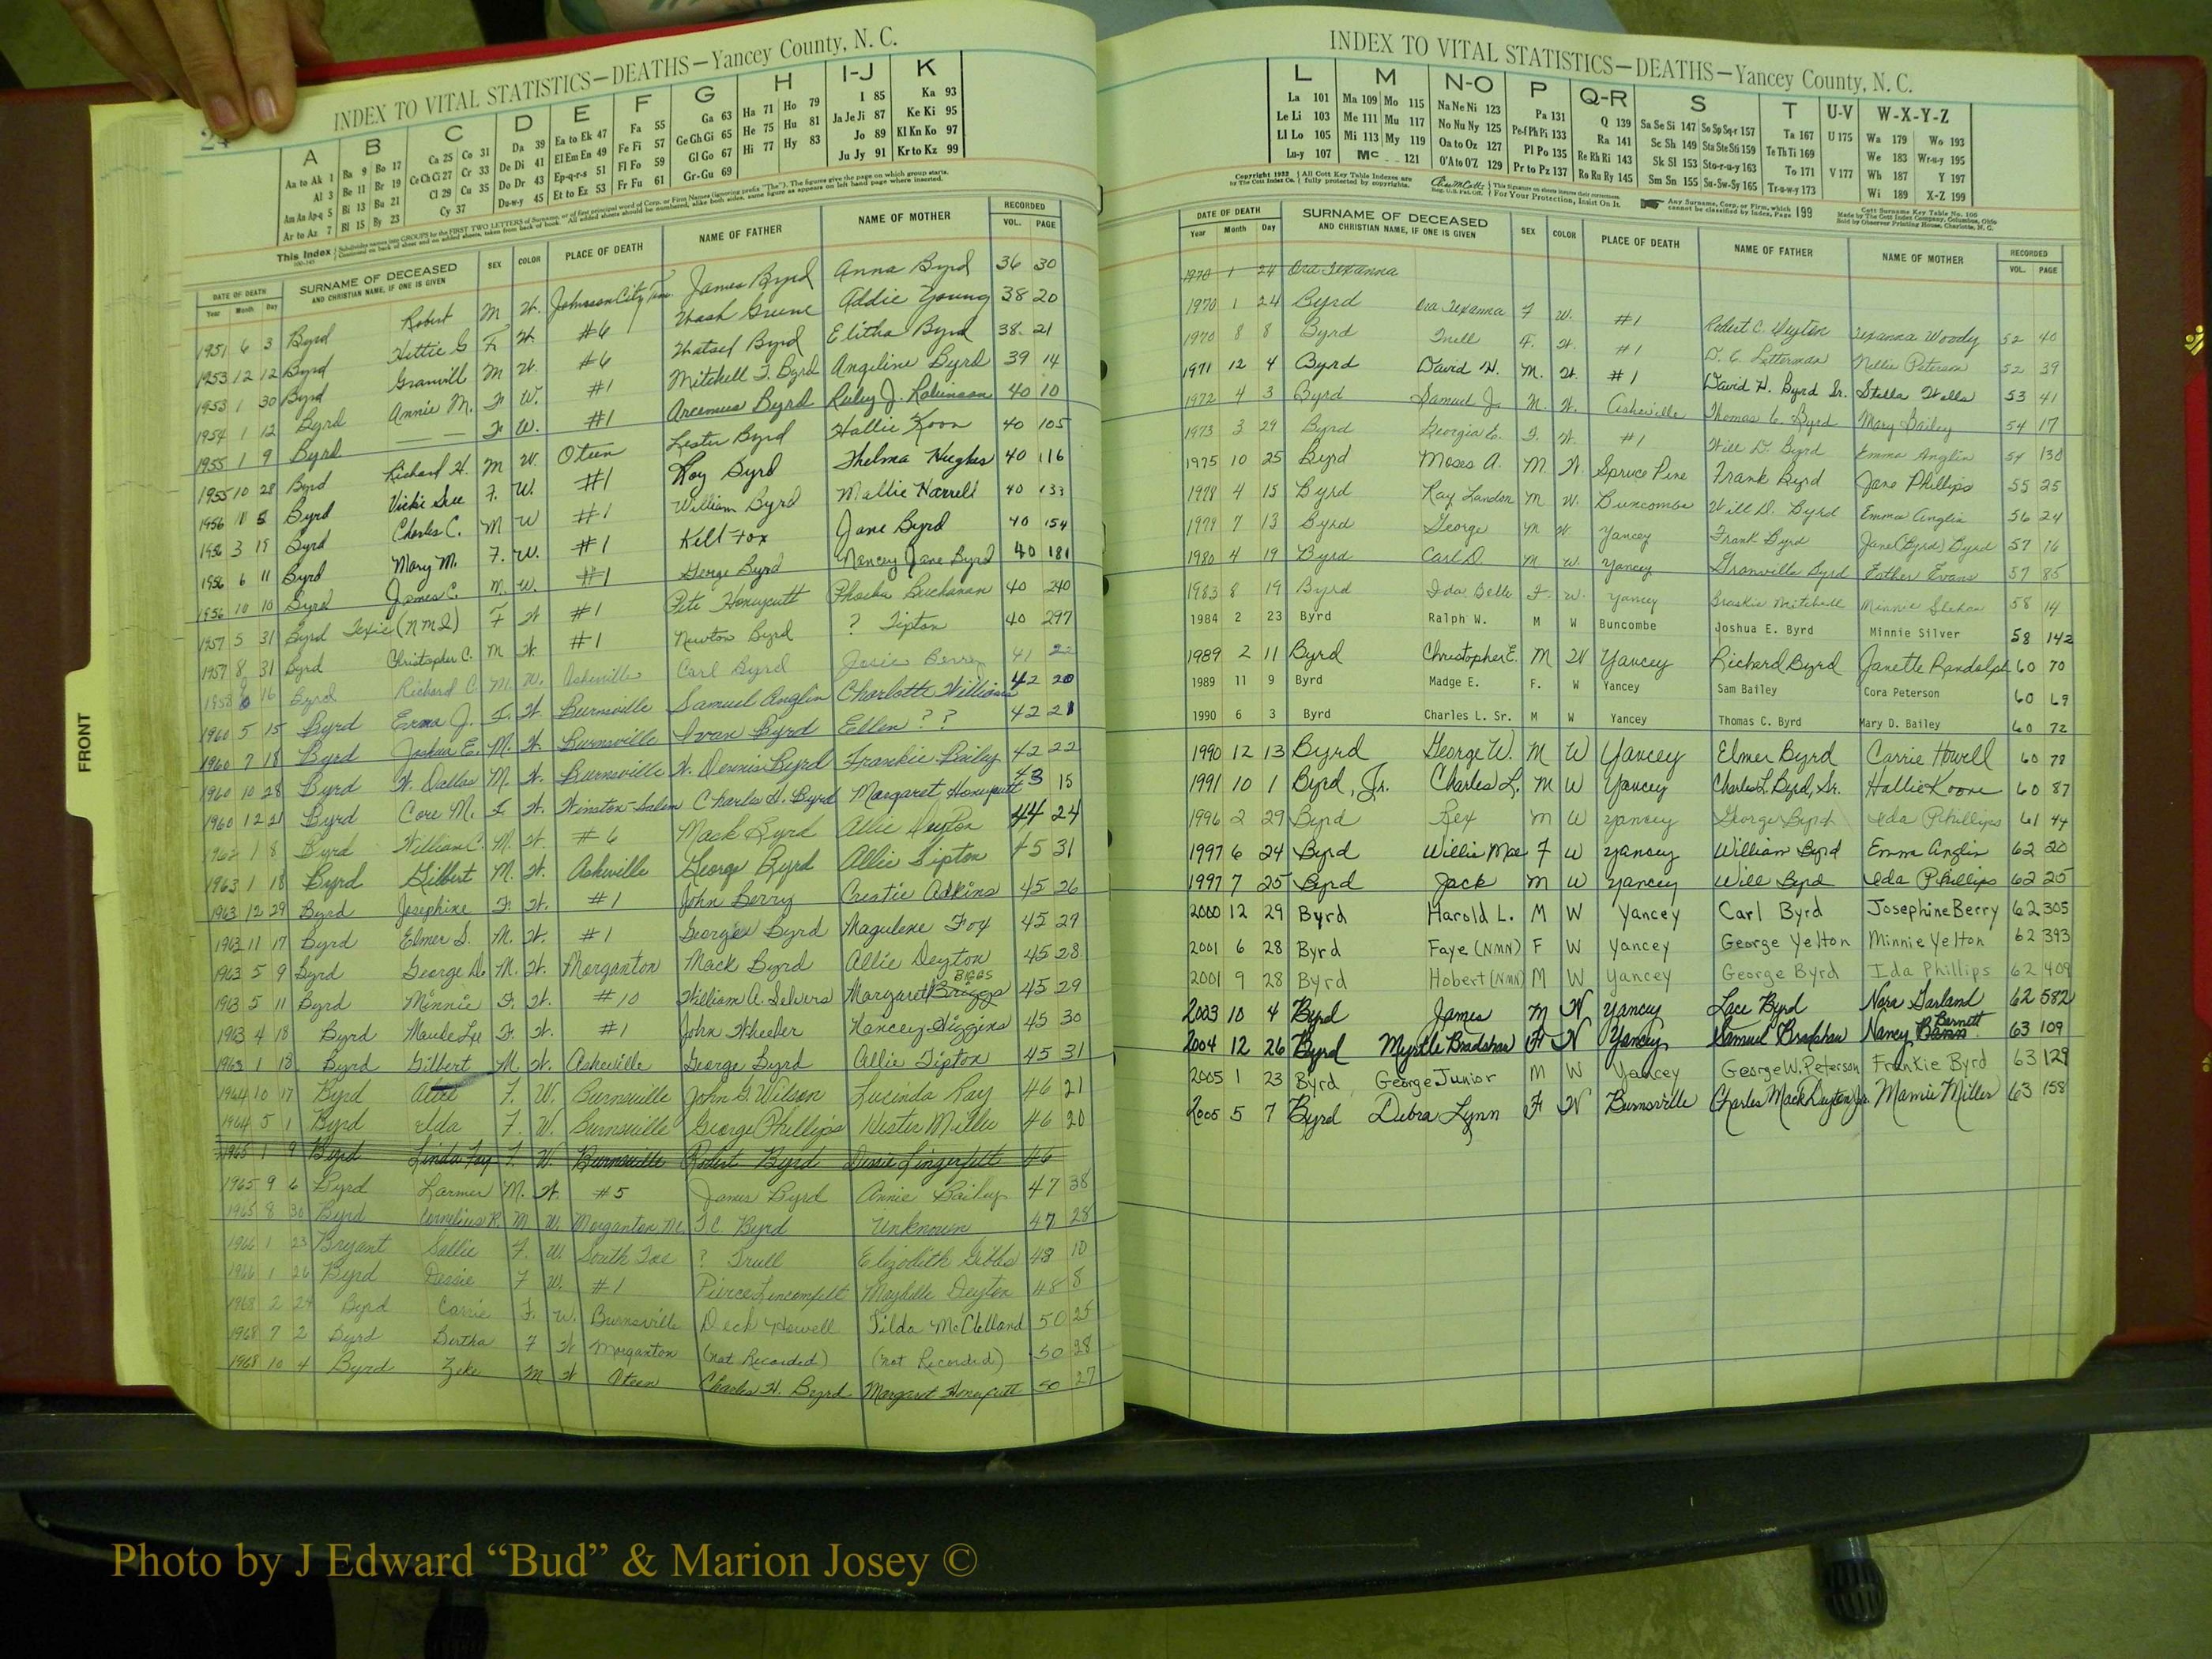 24
INDEX TO VITAL STATISTICS—DEATHS—Yancey County, N. C.
A B C D E F G H I-J K
Aa to Ak 1 Ba 9 Bo 17 Ca 25 Co 31 Da 39 Ea to Ek 47 Fa 55 Ga 63 Ha 71 Ho 79 I 85 Ka 93
Al 3 Be 11 Br 19 Ce Ch Ci 27 Cr 33 De Di 41 El Em En 49 Fe Fi 57 Ge Gh Gi 65 He 75 Hu 81 Ja Je Ji 87 Ke Ki 95
Am An Ap-q 5 Bi 13 Bu 21 Cl 29 Cu 35 Do Dr 43 Ep-q-r-s 51 Fl Fo 59 Gl Go 67 Hi 77 Hy 83 Jo 89 Kl Kn Ko 97
Ar to Az 7 Bl 15 By 23 Cy 37 Du-w-y 45 Et to Ez 53 Fr Fu 61 Gr-Gu 69 Ju Jy 91 Kr to Kz 99
This Index
DATE OF DEATH SURNAME OF DECEASED SEX COLOR PLACE OF DEATH NAME OF FATHER NAME OF MOTHER RECORDED
Year Month Day AND CHRISTIAN NAME, IF ONE IS GIVEN VOL. PAGE
1951 6 3 Byrd Robert M W. Johnson City Tenn. James Byrd Anna Byrd 36 30
1953 12 12 Byrd Hettie G F W #6 Wash Greene Addie Young 38 20
1953 1 30 Byrd Granvill M W. #6 Watsel Byrd Elitha Byrd 38 21
1954 1 12 Byrd Annie M. F W. #1 Mitchell J. Byrd Angeline Byrd 39 14
1955 1 9 Byrd — — F W. #1 Arcemus Byrd Ruby J. Robinson 40 10
1955 10 28 Byrd Richard H. M W. Oteen Lester Byrd Hallie Koon 40 105
1956 11 5 Byrd Vickie Sue F. W. #1 Roy Byrd Thelma Hughes 40 116
1956 3 15 Byrd Charles C. M W #1 William Byrd Mallie Harrell 40 133
1956 6 11 Byrd Mary M. F. W. #1 Kelt Fox Jane Byrd 40 154
1956 10 10 Byrd James C. M. W. #1 George Byrd Nancy Jane Byrd 40 181
1957 5 31 Byrd Texie (NMI) F W #1 Pete Honeycutt Phoeba Buchanan 40 240
1957 8 31 Byrd Christopher C. M W. #1 Newton Byrd ? Tipton 40 297
1958 16 Byrd Richard C. M. W. Asheville Carl Byrd Josie Berry 41 22
1960 5 15 Byrd Erma J. F. W. Burnsville Samuel Anglin Charlotte Williams 42 20
1960 7 18 Byrd Joshua E. M. W. Burnsville Ivan Byrd Ellen ? ? 42 21
1960 10 28 Byrd W. Dallas M. W. Burnsville W. Dennis Byrd Frankie Bailey 42 22
1960 12 21 Byrd Core M. F. W. Winston-Salem Charles H. Byrd Margaret Honeycutt 43 15
1962 1 8 Byrd William C. M. W. #6 Mack Byrd Allie Deyton 44 24
1963 1 18 Byrd Gilbert M. W. Asheville George Byrd Allie Tipton 45 31
1963 12 29 Byrd Josephine F. W. #1 John Berry Creatie Adkins 45 26
1963 11 17 Byrd Elmer S. M. W. #1 George Byrd Magulene Fox 45 27
1963 5 9 Byrd George D. M. W. Morganton Mack Byrd Allie Deyton 45 28
1963 5 11 Byrd Minnie F. W. #10 William A. Silvers Margaret Briggs BIGGS 45 29
1963 4 18 Byrd Maude Lee F. W. #1 John Wheeler Nancey Higgins 45 30
1963 1 18 Byrd Gilbert M. W. Asheville George Byrd Allie Tipton 45 31
1964 10 17 Byrd F. W. Burnsville John G. Wilson Lucinda Ray 46 21
1964 5 1 Byrd Ida F. W. Burnsville George Phillips Hester Miller 46 20
1965 1 9 Byrd Linda Fay F. W. Burnsville Robert Byrd Dessie Lingerfelt 46
1965 9 6 Byrd Larmer M. W. #5 James Byrd Annie Bailey 47 38
1965 8 30 Byrd Cornelius R. M W. Morganton N. J.C. Byrd Unknown 47 28
1966 1 23 Bryant Sallie F. W. South Toe ? Trull Elizabeth Gibbs 48 10
1966 1 26 Byrd Dessie F W. #1 Pierce Lincomfelt Maybelle Deyton 48 8
1968 2 24 Byrd Carrie F. W. Burnsville Deck Howell Tilda McClelland 50 25
1968 7 2 Byrd Bertha F W Morganton (not Recorded) (not Recorded) 50 28
1968 10 4 Byrd Zeke M W Oteen Charles H. Byrd Margaret Honeycutt 50 27
FRONT
INDEX TO VITAL STATISTICS—DEATHS—Yancey County, N. C.
L M N-O P Q-R S T U-V W-X-Y-Z
La 101 Ma 109 Mo 115 Na Ne Ni 123 Pa 131 Q 139 Sa Se Si 147 So Sp Sq-r 157 Ta 167 U 175 Wa 179 Wo 193
Le Li 103 Me 111 Mu 117 No Nu Ny 125 Pe-f Ph Pi 133 Ra 141 Sc Sh 149 Sta Ste Sti 159 Te Th Ti 169 We 183 Wr-u-y 195
Ll Lo 105 Mi 113 My 119 Oa to Oz 127 Pl Po 135 Re Rh Ri 143 Sk Sl 153 Sto-r-u-y 163 To 171 V 177 Wh 187 Y 197
Lu-y 107 Mc 121 O'A to O'Z 129 Pr to Pz 137 Ro Ru Ry 145 Sm Sn 155 Su-Sw-Sy 165 Tr-u-w-y 173 Wi 189 X-Z 199
Copyright 1932 by The Cott Index Co. All Cott Key Table Indexes are fully protected by copyrights. For Your Protection, Insist On It. Any Surname, Corp. or Firm, which cannot be classified by Index, Page 199
DATE OF DEATH SURNAME OF DECEASED SEX COLOR PLACE OF DEATH NAME OF FATHER NAME OF MOTHER RECORDED
Year Month Day AND CHRISTIAN NAME, IF ONE IS GIVEN VOL. PAGE
1970 1 24 Ora Texanna
1970 1 24 Byrd Ora Texanna F W. #1 Robert C. Deyton Texanna Woody 52 40
1970 8 8 Byrd Truell F. W. #1 D. C. Letterman Nellie Peterson 52 39
1971 12 4 Byrd David H. M. W. #1 David H. Byrd Sr. Stella Wells 53 41
1972 4 3 Byrd Samuel J. M. W. Asheville Thomas C. Byrd Mary Bailey 54 17
1973 3 29 Byrd Georgia E. F. W. #1 Will D. Byrd Emma Anglin 54 130
1975 10 25 Byrd Moses A. M. W. Spruce Pine Frank Byrd Jane Phillips 55 25
1978 4 15 Byrd Ray Landon M W. Buncombe Will D. Byrd Emma Anglin 56 24
1979 7 13 Byrd George M W. Yancey Frank Byrd Jane (Byrd) Byrd 57 16
1980 4 19 Byrd Carl D. M W. Yancey Granville Byrd Esther Evans 57 85
1983 8 19 Byrd Ida Belle F. W. Yancey Braskie Mitchell Minnie Shehan 58 14
1984 2 23 Byrd Ralph W. M W Buncombe Joshua E. Byrd Minnie Silver 58 142
1989 2 11 Byrd Christopher E. M W Yancey Richard Byrd Janette Randolph 60 70
1989 11 9 Byrd Madge E. F. W Yancey Sam Bailey Cora Peterson 60 69
1990 6 3 Byrd Charles L. Sr. M W Yancey Thomas C. Byrd Mary D. Bailey 60 72
1990 12 13 Byrd George W. M W Yancey Elmer Byrd Carrie Howell 60 78
1991 10 1 Byrd, Jr. Charles L. M W Yancey Charles L. Byrd, Sr. Hallie Koone 60 87
1996 2 29 Byrd Rex M W Yancey George Byrd Ida Phillips 61 44
1997 6 24 Byrd Willie Mae F W Yancey William Byrd Emma Anglin 62 20
1997 7 25 Byrd Jack M W Yancey Will Byrd Ida Phillips 62 25
2000 12 29 Byrd Harold L. M W Yancey Carl Byrd Josephine Berry 62 305
2001 6 28 Byrd Faye (NMN) F W Yancey George Yelton Minnie Yelton 62 393
2001 9 28 Byrd Hobert (NMN) M W Yancey George Byrd Ida Phillips 62 409
2003 10 4 Byrd James M W Yancey Lace Byrd Nora Garland 62 582
2004 12 26 Byrd Myrtle Bradshaw F W Yancey Samuel Bradshaw Nancy Barnett 63 109
2005 1 23 Byrd George Junior M W Yancey George W. Peterson Frankie Byrd 63 129
2005 5 7 Byrd Debra Lynn F W Burnsville Charles Mack Deyton Jr. Mamie Miller 63 158
Photo by J Edward “Bud” & Marion Josey ©